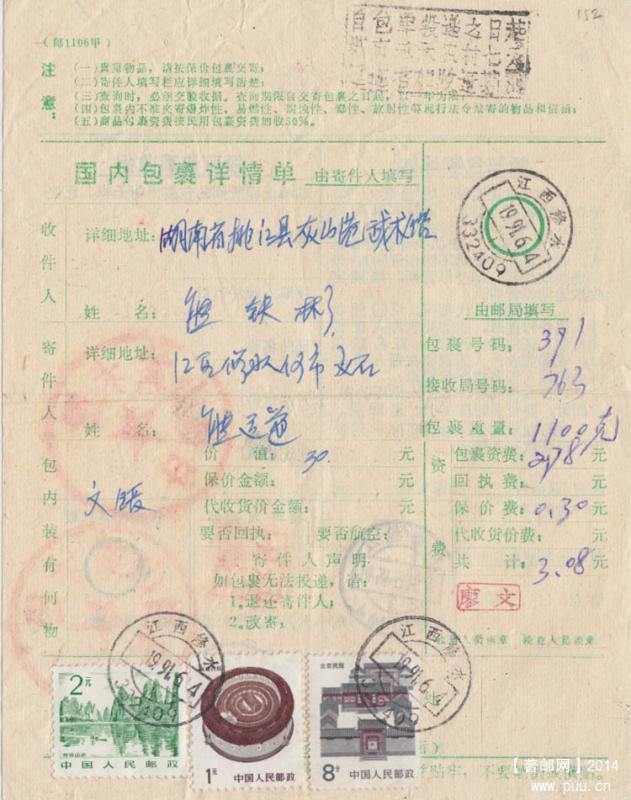 (邮1106甲)
152
注意:
(一)贵重物品,请按保价包裹交寄;
(二)寄件人填写栏应详细填写清楚;
(三)查询时,必须交验收据。查询期限自交寄包裹之日起,以一年为限;
(四)包裹内不准夹寄爆炸性、易燃性、腐蚀性、毒性、放射性等现行法令禁寄的物品和信函;
(五)商品包裹资费按民用包裹资费加收50%。
国内包裹详情单 由寄件人填写
江西修水
19.91.6.4
332409
收件人
详细地址: 湖南省桃江县灰山
姓名: 熊铁
寄件人
详细地址: 江西修水何市
姓名: 熊
包内装有何物
价值: 30. 元
保价金额: 元
代收货价金额: 元
要否回执: 要否航空:
寄件人声明
如包裹无法投递,请:
1.退还寄件人;
2.改寄:
由邮局填写
包裹号码: 391
接收局号码: 763
包裹重量: 1100克
资费
包裹资费: 2.78 元
回执费: 元
保价费: 0.30 元
代收货价费: 元
共计: 3.08 元
廖文
江西修水
19.91.6.4
332409
江西修水
19.91.6.4
332409
2元
中国人民邮政
1元 中国人民邮政
北京民居
8分 中国人民邮政
【普邮网】2014
www.puu.cn